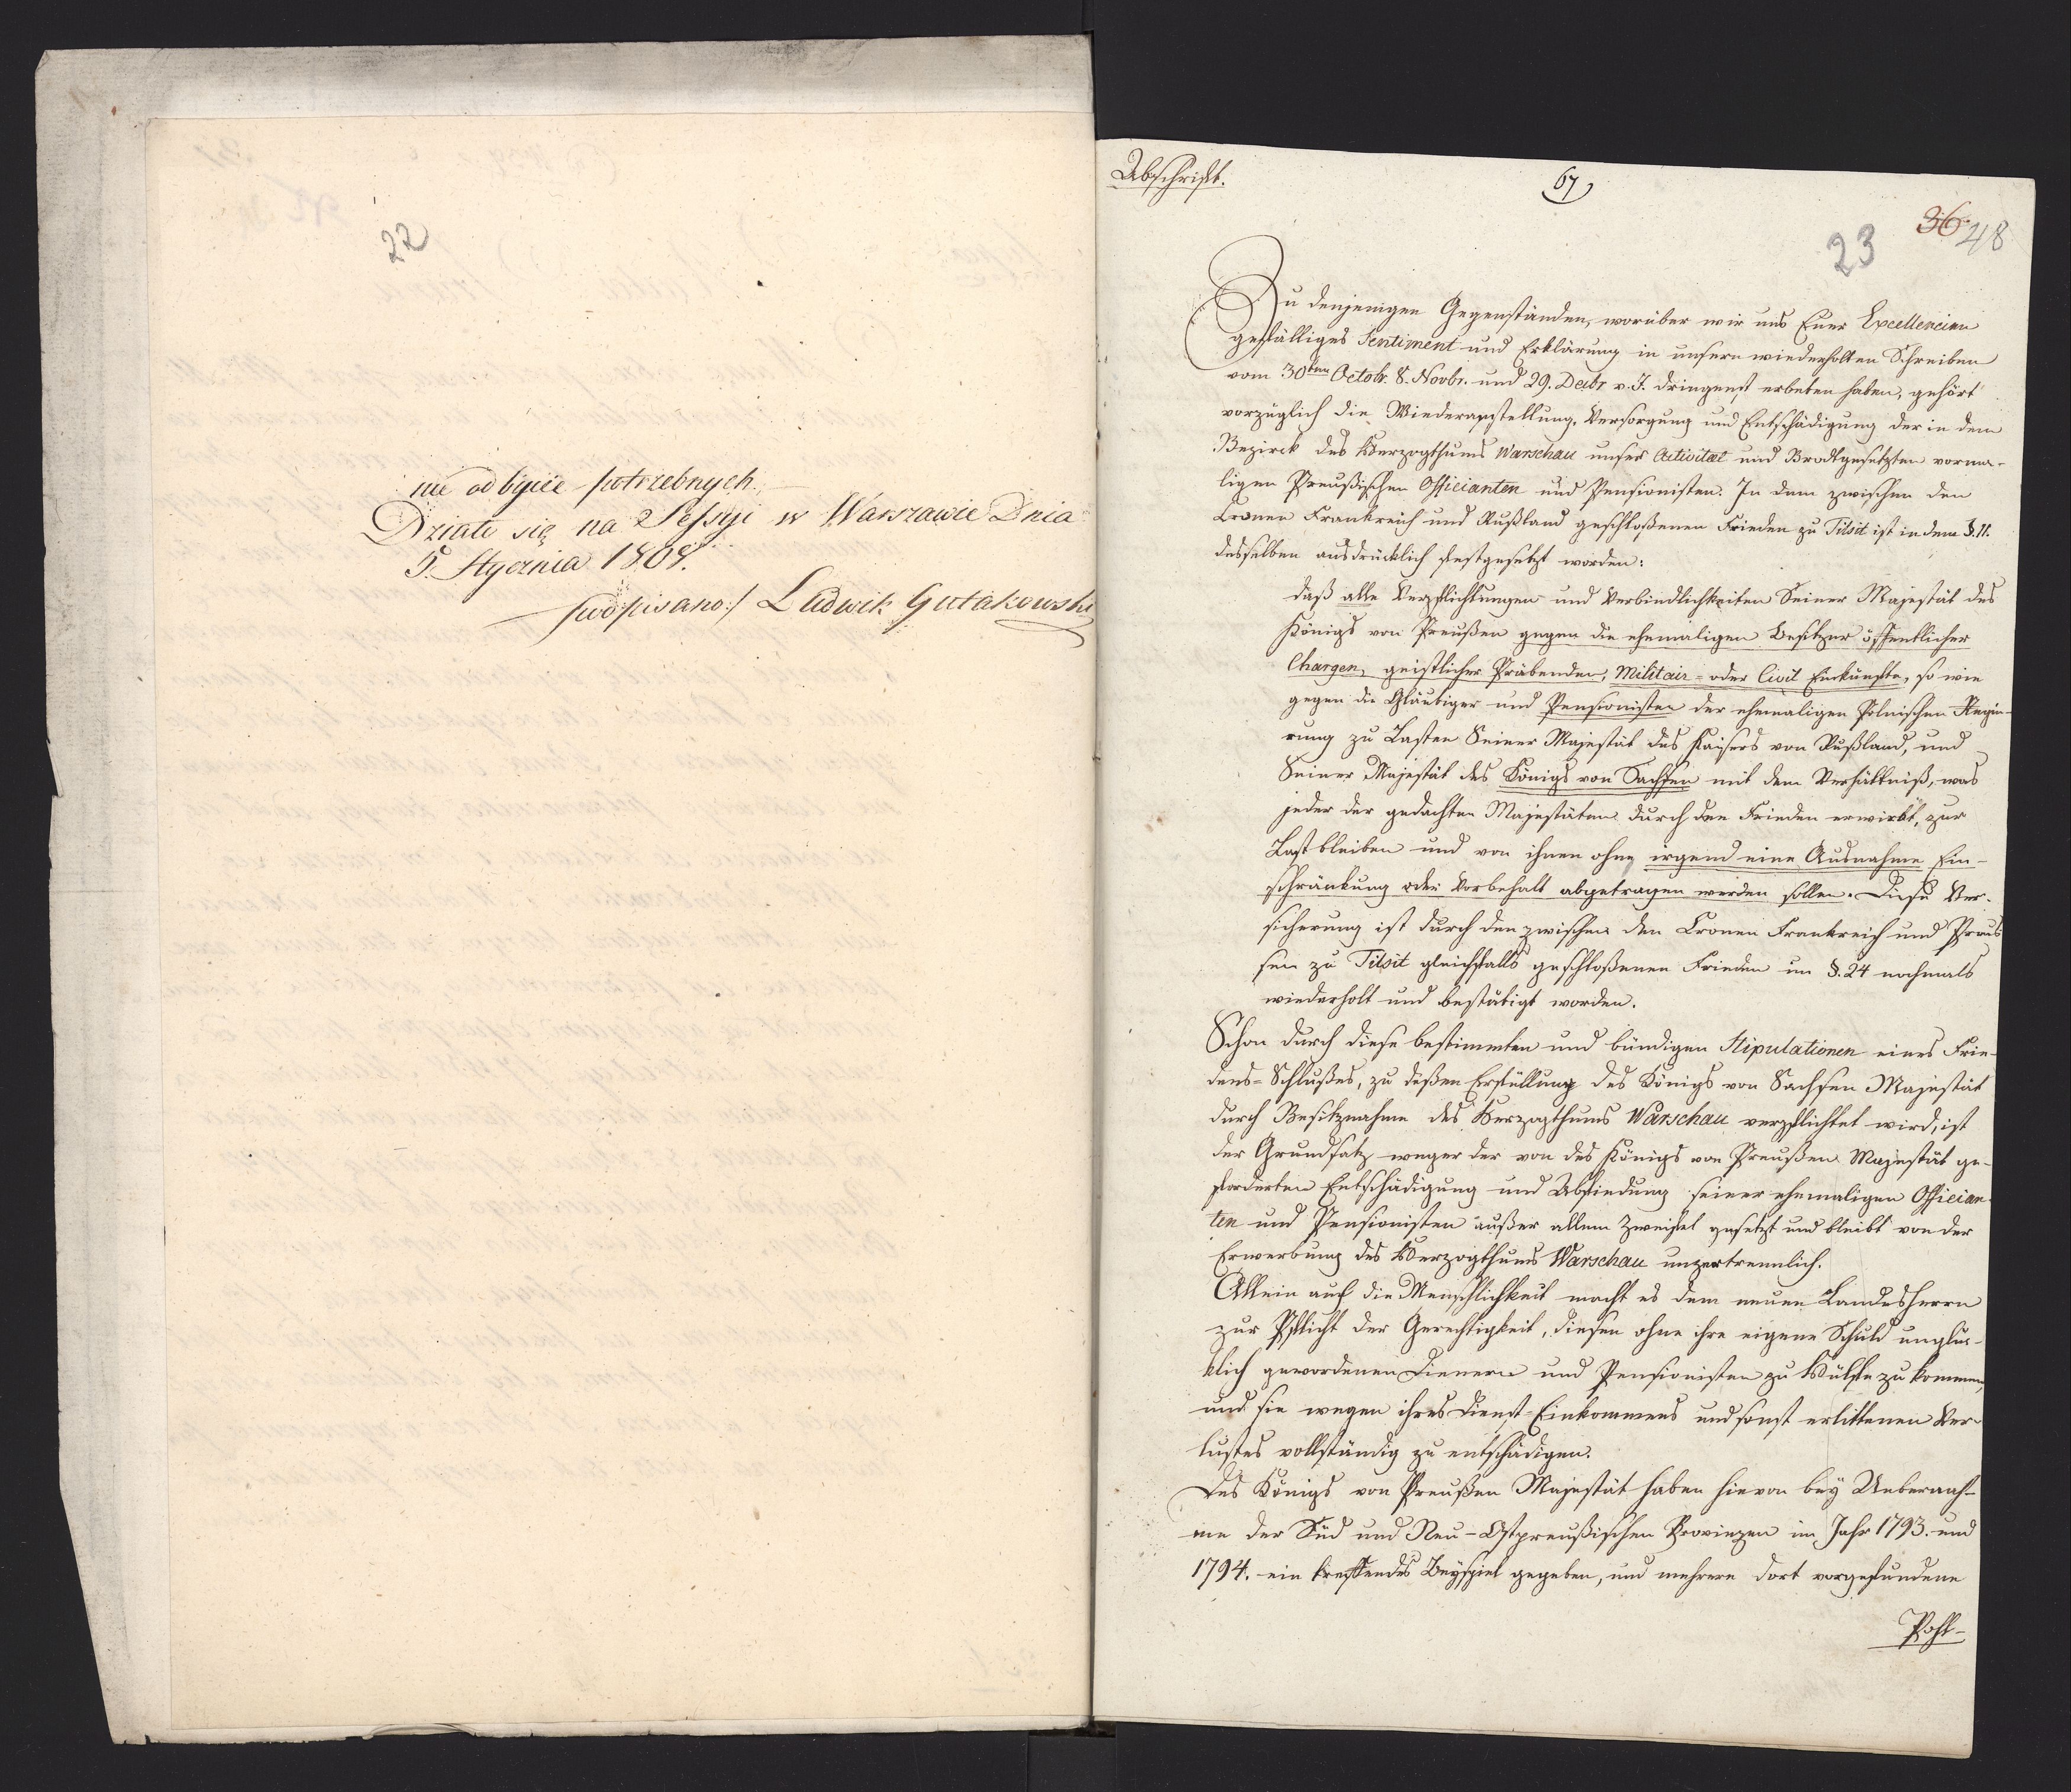 22
nie odbycie potrzebnych.
Działo się na Sessyi w Warszawie Dnia
5. Stycznia 1808.
podpisano:/ Ludwik Gutakowski
Abschrift.
67
36. 48
23
Zu denjenigen Gegenständen, worüber wir uns Euer Excellencien
gefälliges Sentiment und Erklärung in unsern wiederholten Schreiben
vom 30ten Octobr. 8. Novbr. und 29. Decbr v. J. dringenst erbeten haben, gehört
vorzüglich die Wiederanstellung, Versorgung und Entschädigung der in dem
Bezirck des Herzogthums Warschau ausser Activität und Brodtgesetzten vorma-
ligen Preußischen Officianten und Pensionisten. In dem zwischen den
Cronen Frankreich und Rußland geschloßenen Frieden zu Tilsit ist in dem §. 11.
desselben ausdrücklich festgesetzt worden:
daß alle Verpflichtungen und Verbindlichkeiten Seiner Majestät des
Königs von Preußen gegen die ehemaligen Besitzer öffentlicher
Chargen, geistlicher Präbenden, Militair- oder Civil Einkünfte, so wie
gegen die Gläubiger und Pensionisten der ehemaligen Polnischen Regie-
rung zu Lasten Seiner Majestät des Kaisers von Rußland, und
Seiner Majestät des Königs von Sachsen mit dem Verhältniß, was
jeder der gedachten Majestäten durch den Frieden erwirbt, zur
Last bleiben und von ihnen ohne irgend eine Ausnahme Ein-
schränkung oder Vorbehalt abgetragen werden sollen. Diese Ver-
sicherung ist durch den zwischen den Cronen Frankreich und Preus
sen zu Tilsit gleichfalls geschloßenen Frieden im §. 24 nochmals
wiederholt und bestätigt worden.
Schon durch diese bestimmten und bündigen Stipulationen eines Frie-
dens-Schlußes, zu deßen Erfüllung des Königs von Sachsen Majestät
durch Besitznahme des Herzogthums Warschau verpflichtet wird, ist
der Grundsatz wegen der von des Königs von Preußen Majestät ge-
forderten Entschädigung und Abfindung seiner ehemaligen Offician-
ten und Pensionisten außer allem Zweifel gesetzt und bleibt von der
Erwerbung des Herzogthums Warschau unzertrennlich.
Allein auch die Menschlichkeit macht es dem neuen Landesherrn
zur Pflicht der Gerechtigkeit, diesen ohne ihre eigene Schuld unglü-
klich gewordenen Dienern und Pensionisten zu Hülfe zu kommen,
und sie wegen ihres Dienst-Einkommens und sonst erlittenen Ver-
lustes vollständig zu entschädigen.
Des Königs von Preußen Majestät haben hievon bey Uebernah-
me der Süd und Neu-Ostpreußischen Provinzen im Jahr 1793. und
1794. ein treffendes Beyspiel gegeben, und mehrere dort vorgefundene
Pohl-